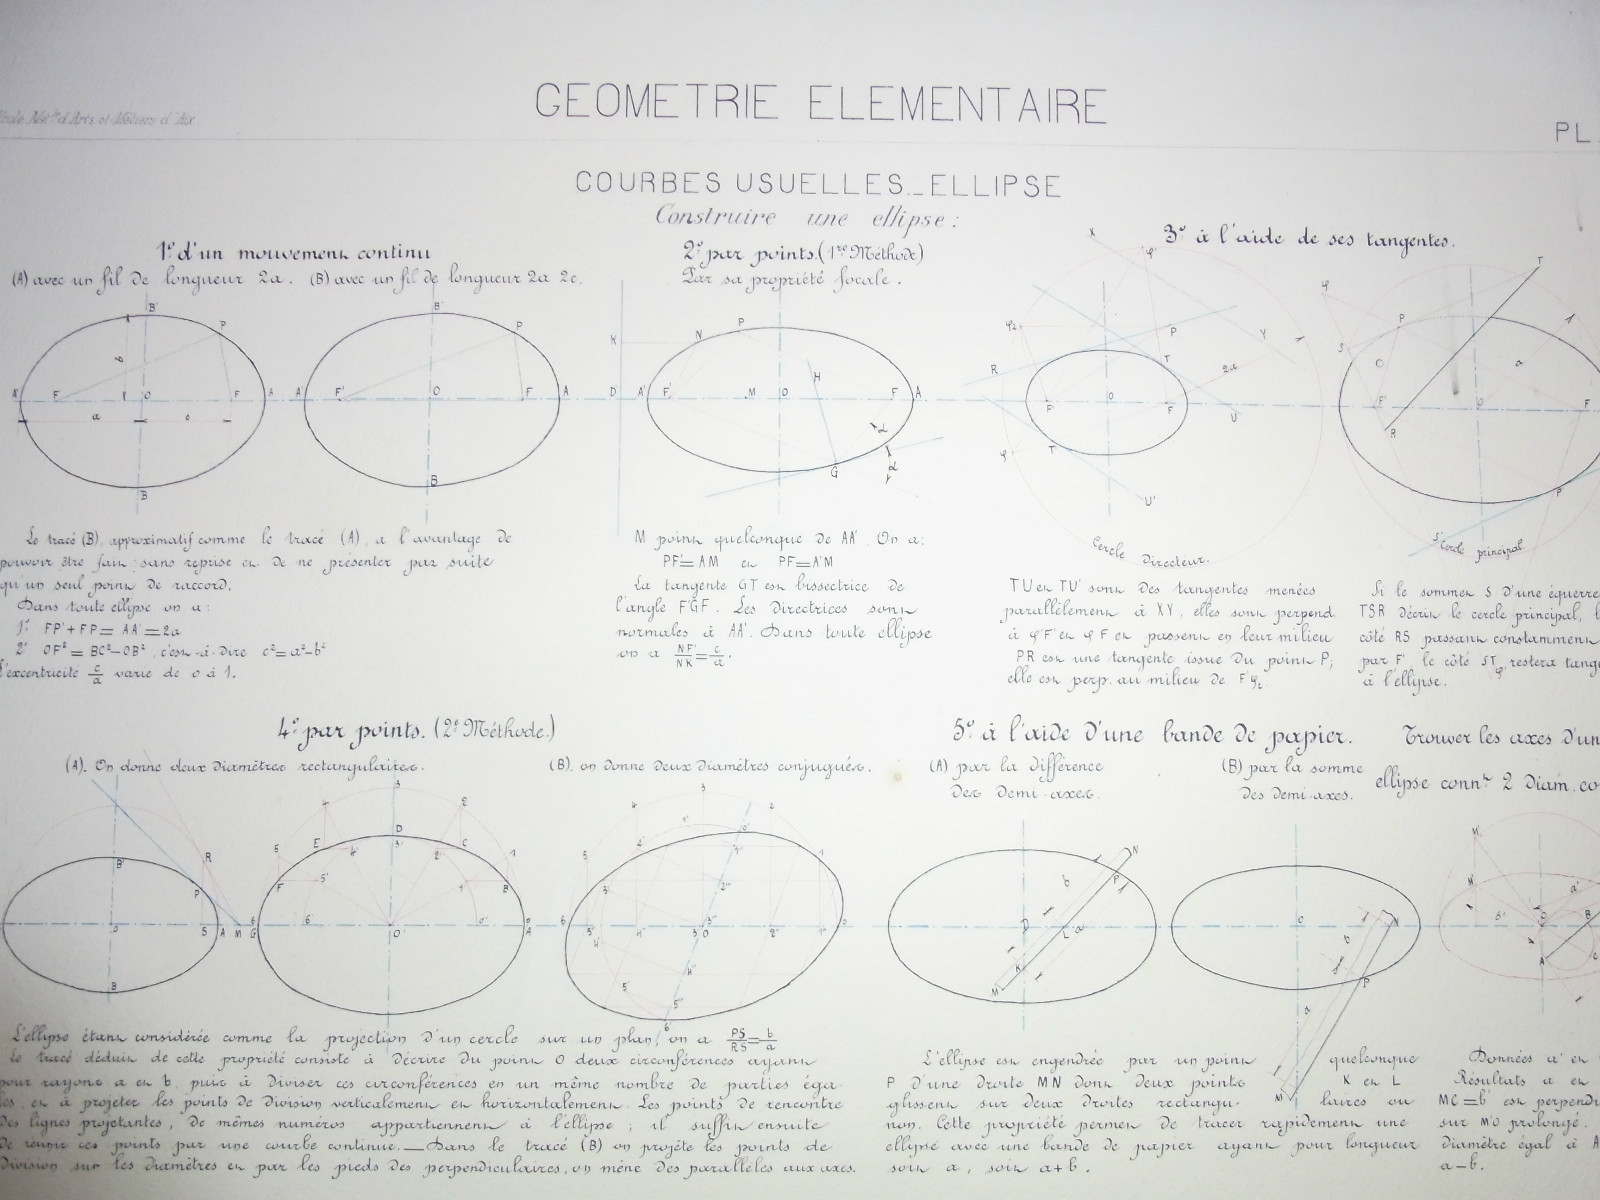 Ecole Nat.le d'Arts et Métiers d'Aix
GEOMETRIE ELEMENTAIRE
PL.
COURBES USUELLES_ELLIPSE
Construire une ellipse :
1º d'un mouvement continu
(A) avec un fil de longueur 2a. (B) avec un fil de longueur 2a 2c.
2º par points. (1re Méthode)
Par sa propriété focale.
3º à l'aide de ses tangentes.
Le tracé (B), approximatif comme le tracé (A), a l'avantage de
pouvoir être fait sans reprise et de ne présenter par suite
qu'un seul point de raccord.
Dans toute ellipse on a :
1º FP'+FP=AA'=2a
2º OF²=BC²-OB², c'est-à-dire c²=a²-b²
L'excentricité c/a varie de 0 à 1.
M point quelconque de AA'. On a :
PF'=AM et PF=A'M
La tangente GT est bissectrice de
l'angle F'GF. Les Directrices sont
normales à AA'. Dans toute ellipse
on a NF'/NK=c/a.
Cercle Directeur.
TU et TU' sont des tangentes menées
parallèlement à XY, elles sont perpend.
à φ'F' et φF et passent en leur milieu
PR est une tangente issue du point P;
elle est perp. au milieu de F'φ₂
Cercle principal
Si le sommet S d'une équerre
TSR décrit le cercle principal, l
côté RS passant constamment
par F', le côté ST restera tang
à l'ellipse.
4º par points. (2e Méthode.)
(A). On donne deux diamètres rectangulaires.
(B). on donne deux diamètres conjugués.
5º à l'aide d'une bande de papier.
(A) par la différence
des demi-axes.
(B) par la somme
des demi-axes.
Trouver les axes d'un
ellipse connt 2 diam. co
L'ellipse étant considérée comme la projection d'un cercle sur un plan, on a PS/RS=b/a
Le tracé déduit de cette propriété consiste à décrire du point O deux circonférences ayant
pour rayons a et b, puis à diviser ces circonférences en un même nombre de parties éga-
les, et à projeter les points de division verticalement et horizontalement. Les points de rencontre
des lignes projetantes, de mêmes numéros appartiennent à l'ellipse ; il suffit ensuite
de réunir ces points par une courbe continue.—Dans le tracé (B) on projète les points de
division sur les diamètres et par les pieds des perpendiculaires, on mène des parallèles aux axes.
L'ellipse est engendrée par un point quelconque
P d'une droite MN dont deux points K et L
glissent sur deux droites rectangulaires ou
non. Cette propriété permet de tracer rapidement une
ellipse avec une bande de papier ayant pour longueur
soit a, soit a+b.
Données a' et
Résultats a et
MC=b' est perpendi
sur M'O prolongé.
diamètre égal à A
a-b.